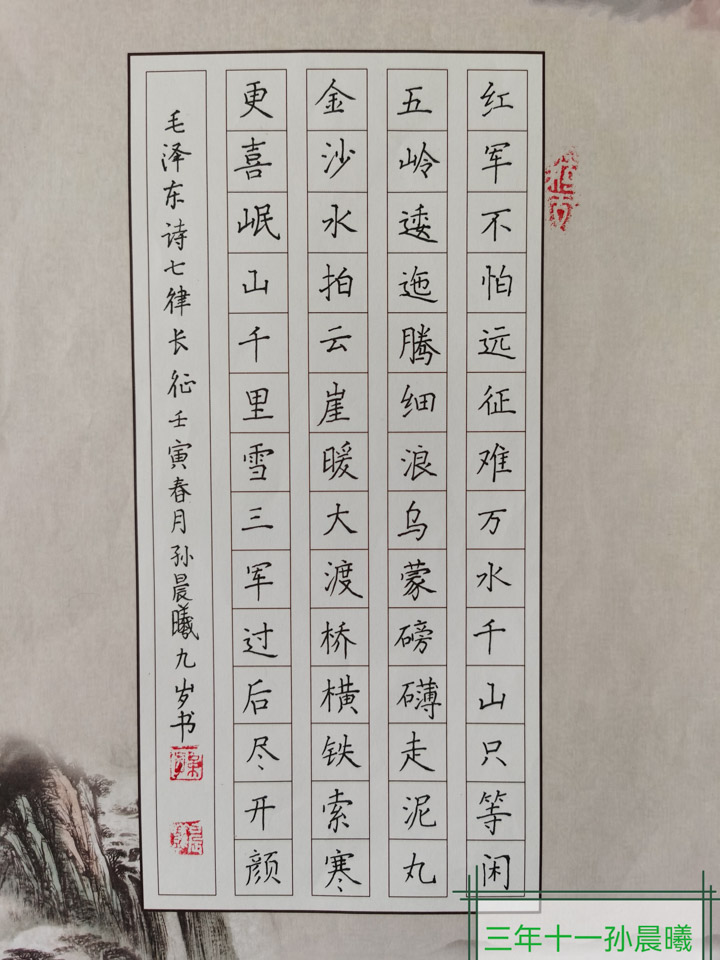 红军不怕远征难万水千山只等闲
五岭逶迤腾细浪乌蒙磅礴走泥丸
金沙水拍云崖暖大渡桥横铁索寒
更喜岷山千里雪三军过后尽开颜
毛泽东诗七律长征壬寅春月孙晨曦九岁书
三年十一孙晨曦